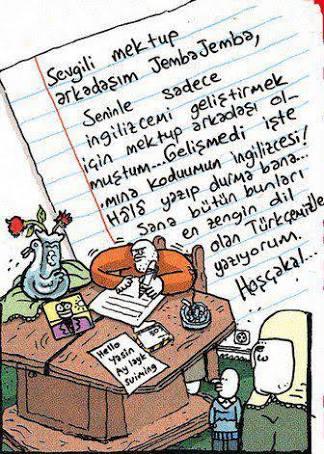 Sevgili mektup
arkadaşım JembaJemba,
Seninle sadece
ingilizcemi geliştirmek
için mektup arkadaşı ol-
muştum... Gelişmedi işte
.mına koduumun ingilizcesi!
Hâlâ yazıp durma bana...
Sana bütün bunları
en zengin dil
olan Türkçemizle
yazıyorum.
Hoşçakal...
Hello
Yasin
Ay layk
suiming